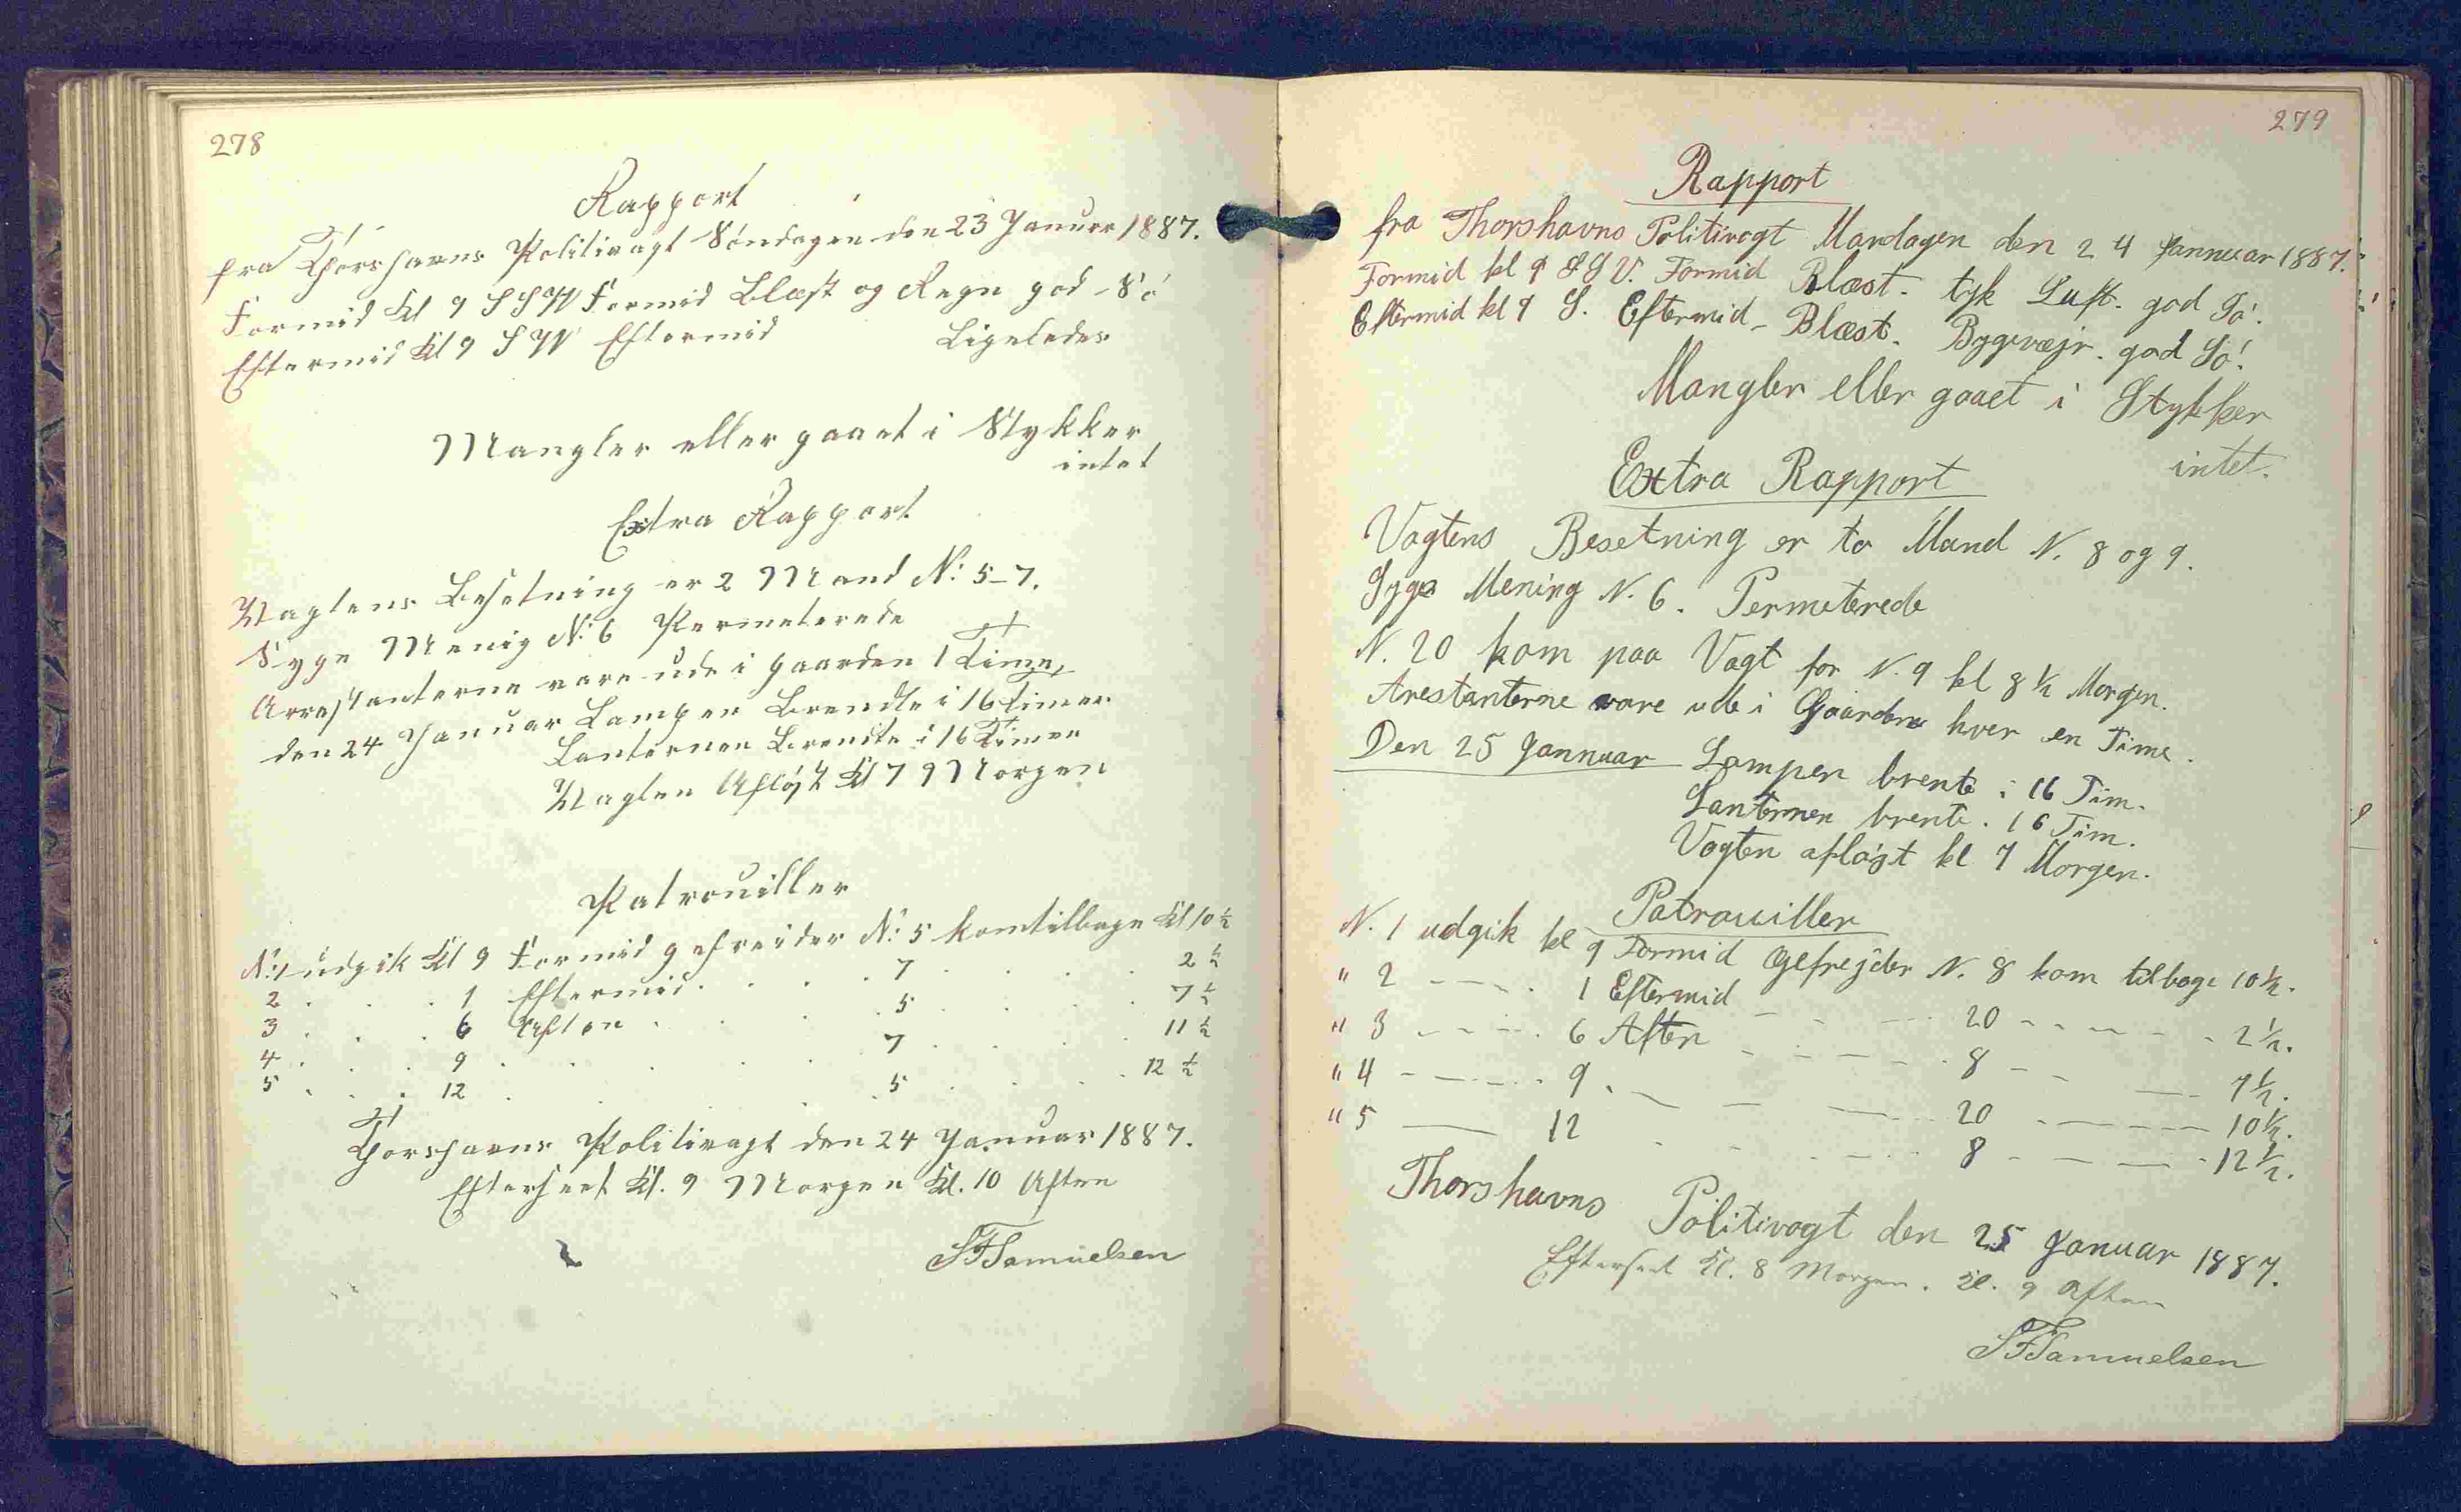 278
Rapport
fra Thorshavns Politivagt Söndagen den 23 Januar 1887.
Formid Kl 9 SSW Formid Blæst og Regn god Sö
Eftermid Kl 9 SW Eftermid Ligeledes
Mangler eller gaaet i Stykker
intet
Extra Rapport
Vagtens Besetning er 2 Mand N: 5-7.
Syge Menig N: 6 Permeterede
Arrestanterne vare ude i Gaarden 1 Time,
den 24 Januar Lampen Brendte i 16 Timer
Lanternen Brendte i 16 Timer
Vagten Aflöst Kl 7 Morgen
Patrouiller
N: 1 udgik Kl 9 Formid gefreider N: 5 kom tilbage Kl 10 ½
2 . . . 1 Eftermid . . . . 7 . . . . 2 ½
3 . . . 6 Aften . . . . 5 . . . . 7 ½
4 . . . 9 . . . . 7 . . . . 11 ½
5 . . . 12 . . . . 5 . . . . 12 ½
Thorshavns Politivagt den 24 Januar 1887.
Efterseet Kl. 9 Morgen Kl. 10 Aften
SFSamuelsen
279
Rapport
fra Thorshavns Politivagt Mandagen den 24 Jannuar 1887.
Formid kl 9 SSV. Formid Blæst. tyk Luft. god Sö.
Eftermid kl 9 S. Eftermid - Blæst. Bygevejr. god Sö.
Mangler eller gaaet i Stykker
intet.
Extra Rapport
Vagtens Besetning er to Mand N. 8 og 9.
Syge Mening N. 6. Permeterede
N. 20 kom paa Vagt for N. 9 kl 8 ½ Morgen.
Arestanterne vare ude i Gaarden hver en Time.
Den 25 Jannuar Lampen brente i 16 Tim.
Lanternen brente. 16 Tim.
Vagten aflöst kl 7 Morgen.
Patrouiller
N. 1 udgik kl 9 Formid Gefrejder N. 8 kom tilbage 10 ½.
" 2 - - - - 1 Eftermid - - - 20 - - - - 2 ½.
" 3 - - - - 6 Aften - - - - 8 - - - 7 ½.
" 4 - - - - 9 - - - - 20 - - - - 10 ½.
" 5 - - - 12 - - - - 8 - - - - 12 ½.
Thorshavns Politivagt den 25 Januar 1887.
Efterseet Kl. 8 Morgen. Kl. 9 Aften
SFSamuelsen